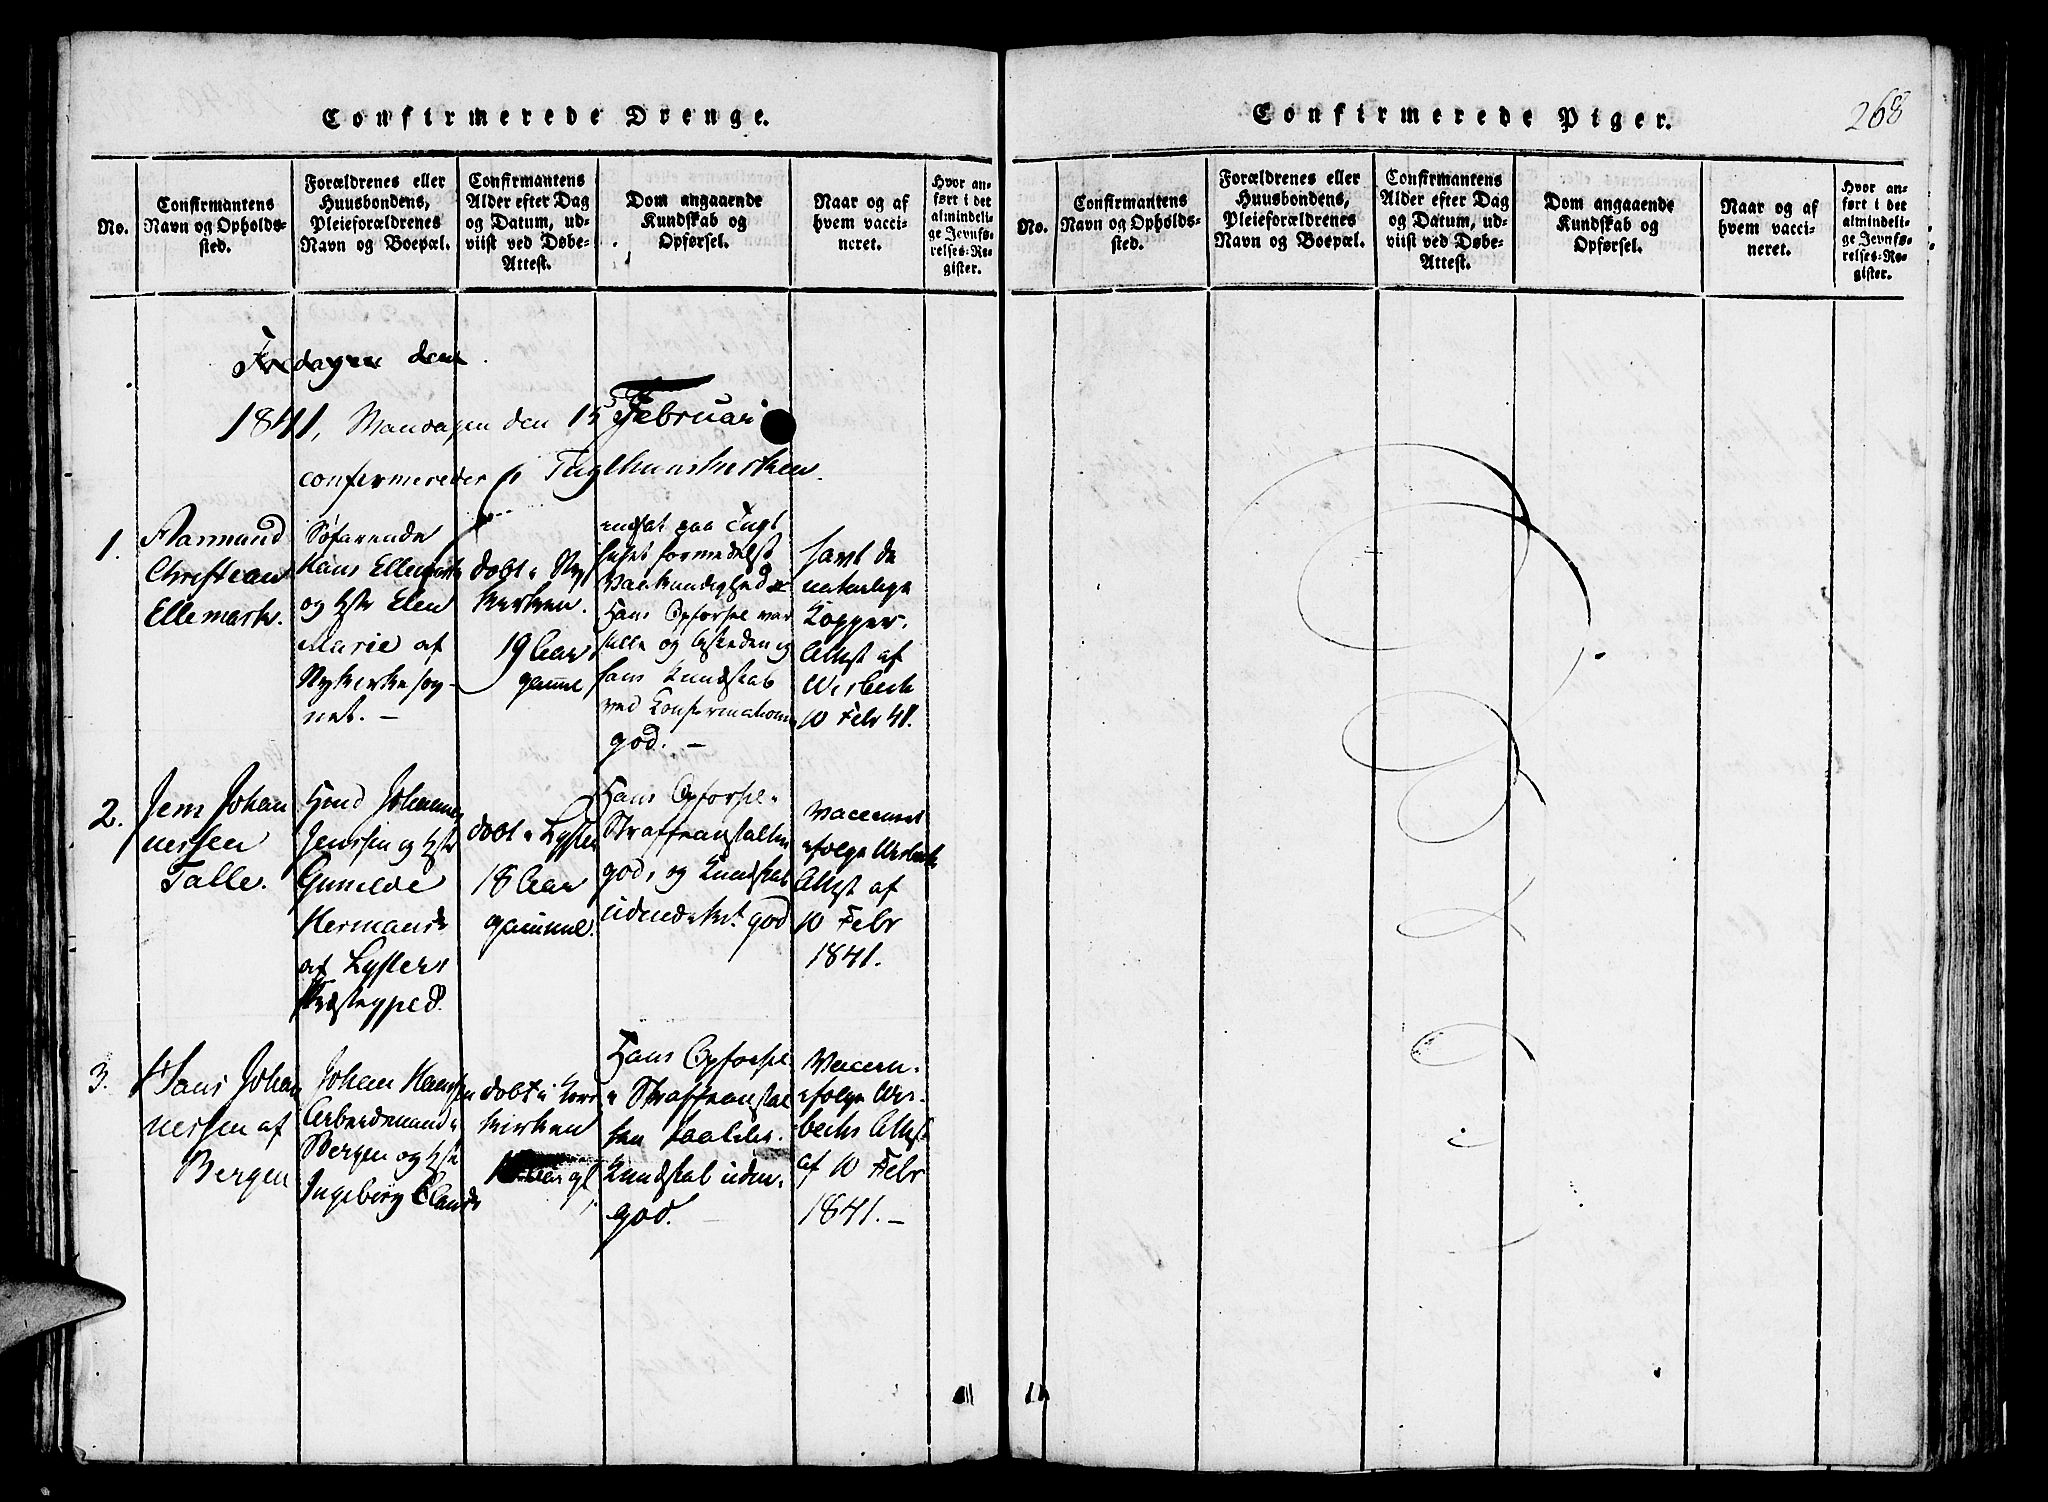 Confirmerede Drenge.
No.
Confirmantens
Navn og Opholds-
sted.
Forældrenes eller
Huusbondens,
Pleieforældrenes
Navn og Boepæl.
Confirmantens
Alder efter Dag
og Datum, ud-
viist ved Døbe-
Attest.
Dom angaaende
Kundskab og
Opførsel.
Naar og af
hvem vacci-
neret.
Hvor an-
ført i det
almindeli-
ge Jevnfø-
relses-Re-
gister.
Fredagen den
1841, Mandagen den 15 Februar
confirmeredes i Tugthuuskirken.
1.
Aamund
Christian
Ellemark.
Søfarende
Hans Ellemark
og Hstr Elen
Marie af
Nykirkesog-
net. —
døbt i Ny
kirken.
19 Aar
gaml
indsat paa Tugt
huset formedelst
Hans Opførsel var
stille og
hans Kundskab
ved Confirmationen
god. —
havt de
naturlige
Kopper.
Attest af
Wisbech
10 Febr 41.
2.
Jens Johan
nessen
Talle.
Johannes
Jenssen og Hstr
Gunilde
Hermansd
af Lysters
Præstegjeld.
døbt i Lyster
18 Aar
gammel.
Hans Opførsel i
Straffeanstalten
god, og Kundskab
udmærket god
Vaccineret
ifølge Wisbech
Attest af
10 Febr
1841.
3.
Hans Johan
nessen af
Bergen
Johan Hanssen
Arbeidsmand i
Bergen og Hstr
Ingeborg
døbt i Kors
kirken
Aar gl
Hans Opførsel
i Straffeanstal
ten
Kundskab
god. —
Vaccin.
ifølge Wis-
bechs Attest
af 10 Febr
1841. —
Confirmerede Piger.
268
No.
Confirmantens
Navn og Opholds-
sted.
Forældrenes eller
Huusbondens,
Pleieforældrenes
Navn og Boepæl.
Confirmantens
Alder efter Dag
og Datum, ud-
viist ved Døbe-
Attest.
Dom angaaende
Kundskab og
Opførsel.
Naar og af
hvem vacci-
neret.
Hvor an-
ført i det
almindeli-
ge Jevnfø-
relses-Re-
gister.